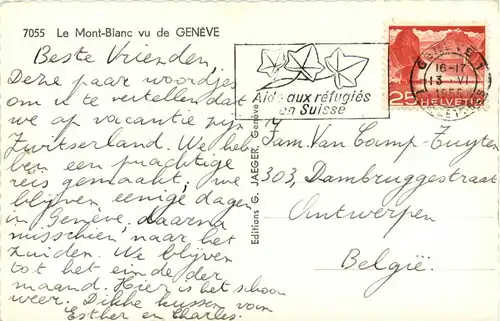 7055 Le Mont-Blanc vu de GENÈVE
Beste Vrienden,
Deze paar woordjes
om u te vertellen dat
we op vacantie zijn in
Zwitserland. We heb-
ben een prachtige
reis gemaakt, we
blijven eenige dagen
in Genève. daarna
misschien, naar het
zuiden. We blijven
tot het einde der
maand. Hier is het schoon
weer. Dikke kussen van
Esther en Charles.
Editions G. JAEGER, Genève
Aide aux réfugiés
en Suisse
16-17
13 VI
25 HELVETIA
Fam. Van Camp-Tuyten
303, Dambruggestraat
Antwerpen
België.